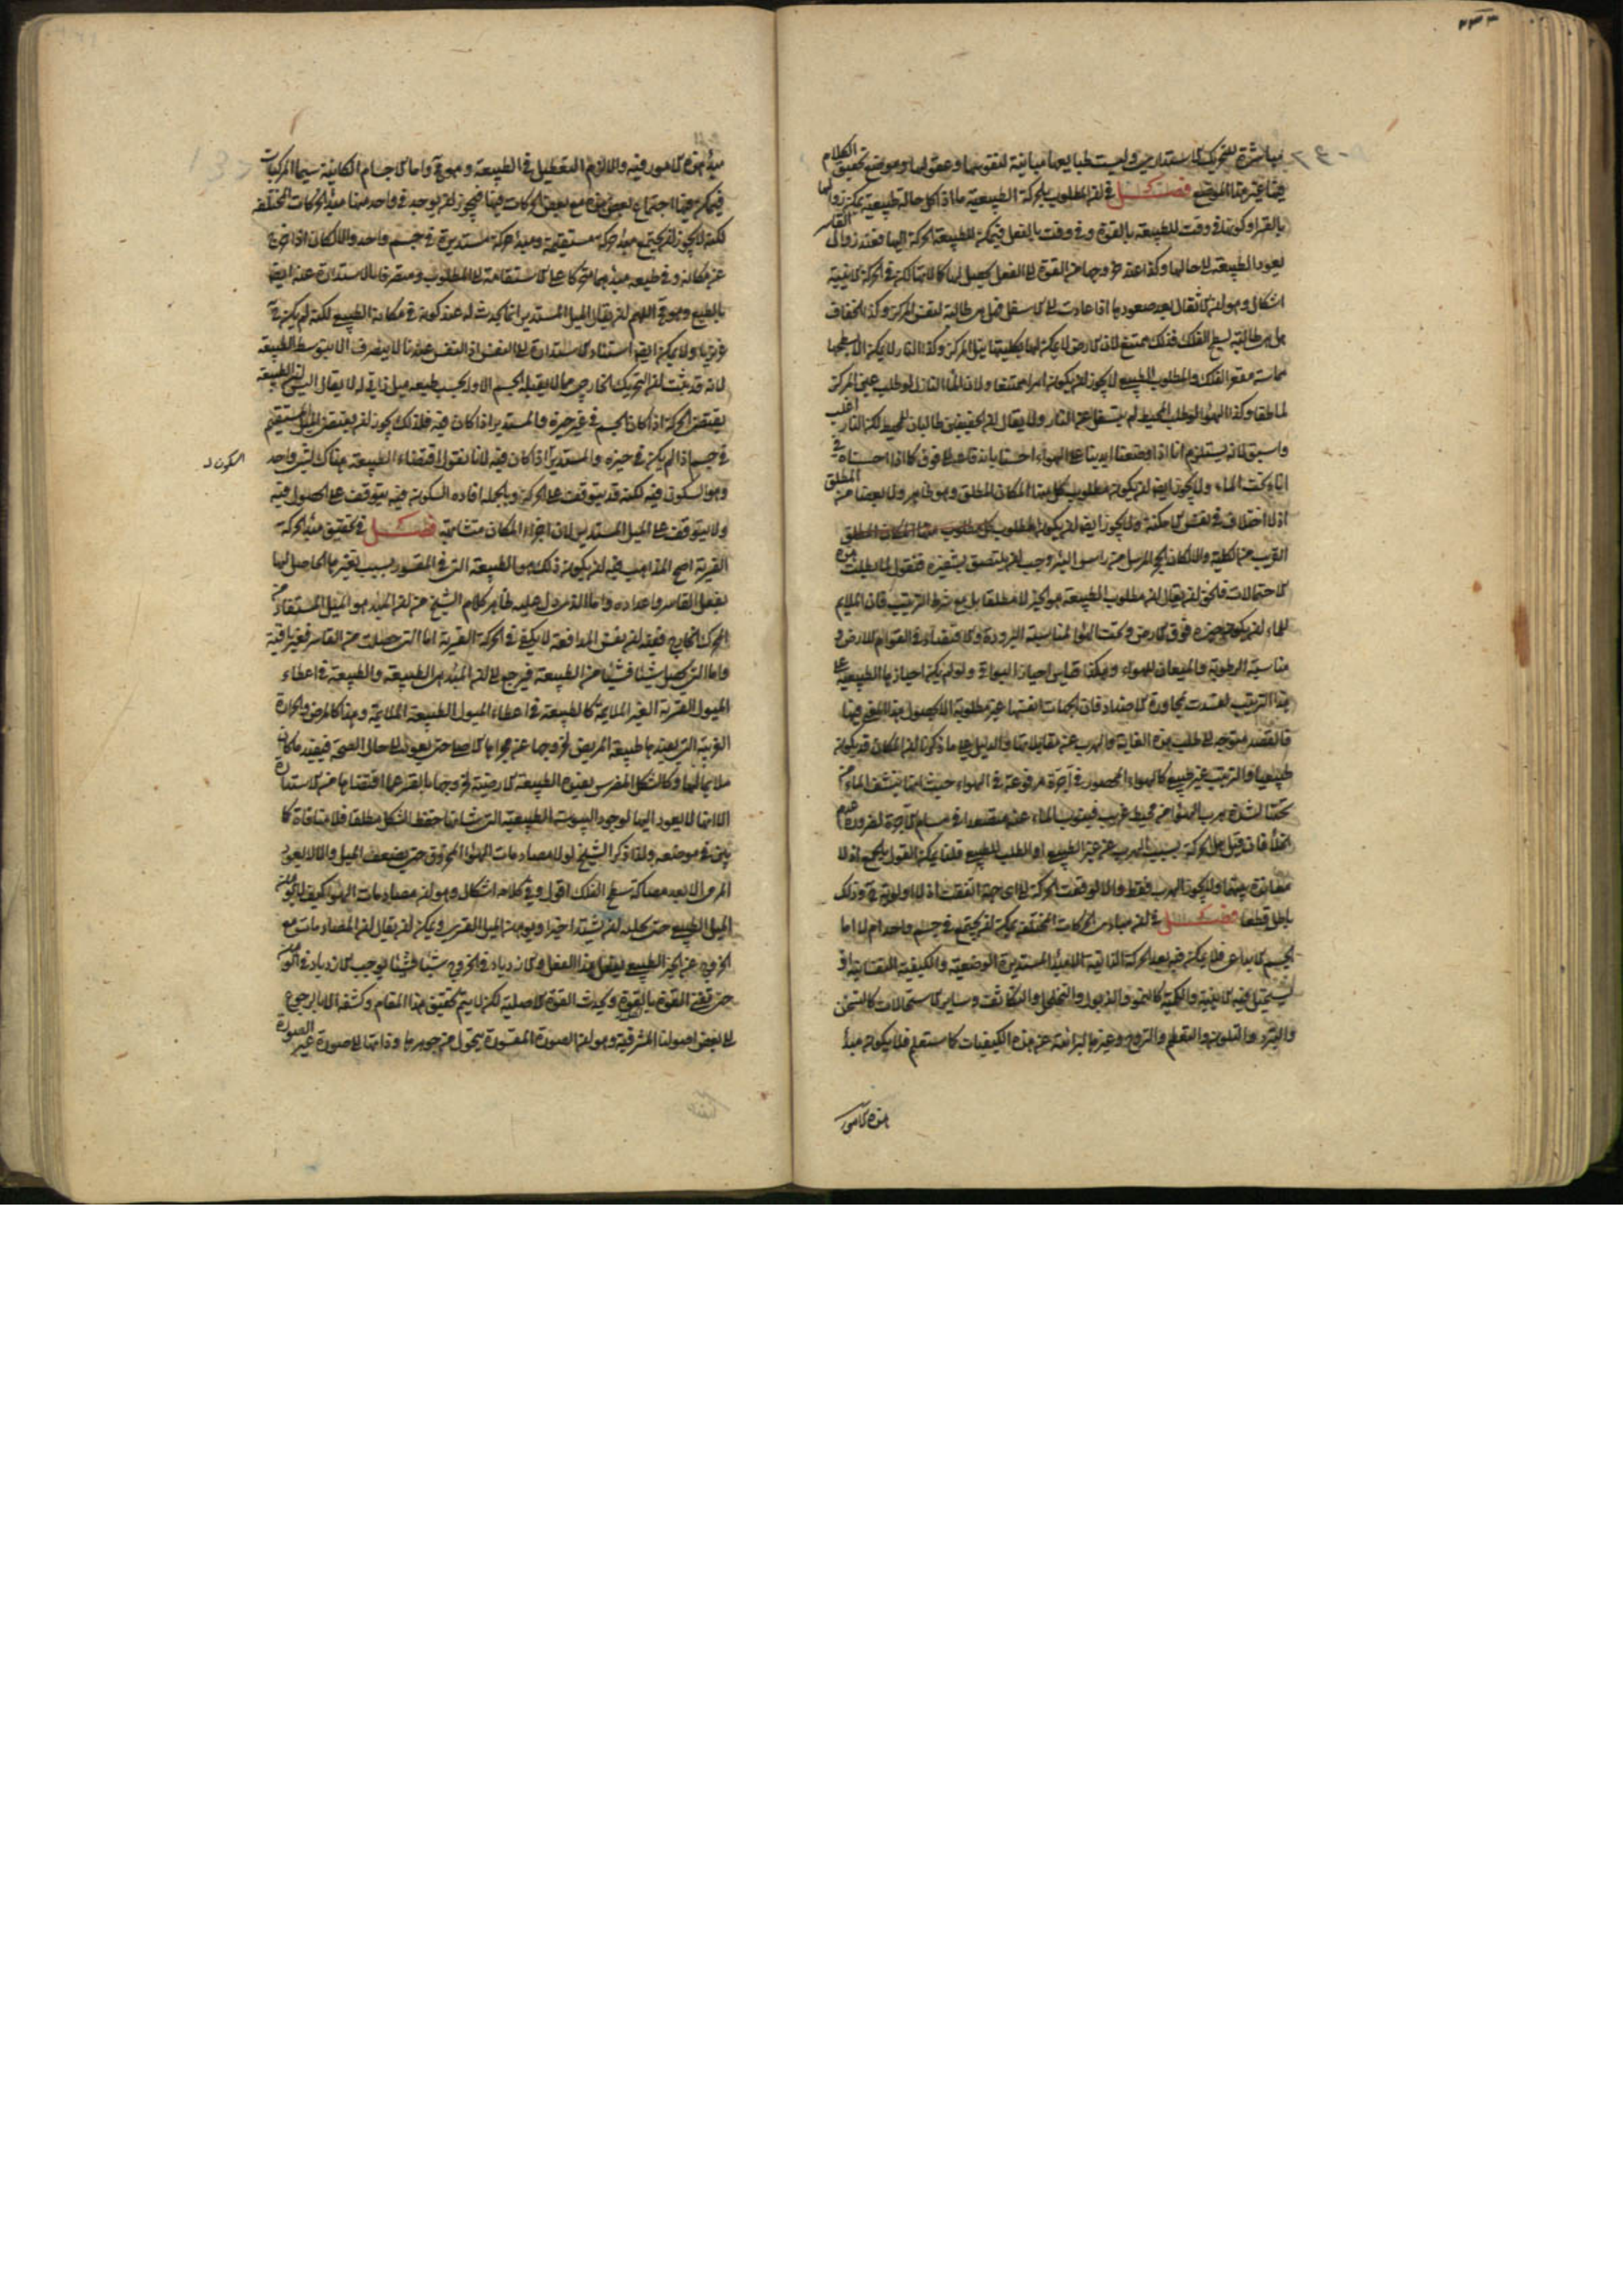 ٢٣٣
مباشرة للتحريك الاستدارى وليست طبايعها مباينة لنفوسها وعقولها وموضع تحقيق الكلام
فيها غير هذا الموضع فصل في ان المطلوب بالحركة الطبيعية ماذا كل حالة طبيعية يمكن زوالها
بالقسر او كونها في وقت للطبيعة بالقوة وفي وقت بالفعل فيمكن للطبيعة الحركة اليها فعند زوال القاسر
يعود الطبيعة الى حالها وكذا عند خروجها من القوة الى الفعل يحصل لها كمالاتها لكن في الحركة الاينية
اشكال وهو ان الاثقال بعد صعودها اذا عادت الى الاسفل فهل هي طالبة لنفس المركز وكذا الخفاف
هل هي طالبة لسطح الفلك فذلك ممتنع لان الارض لا يمكن لها بكليتها نيل المركز وكذا النار لا يمكن الا لسطحها
مماسة مقعر الفلك والمطلوب الطبيعي لا يجوز ان يكون امرا ممتنعا ولان الماء النازل لو طلب عين المركز
لما طفا وكذا الهواء لو طلب المحيط لم يتسفل عن النار ولا يقال ان الحقيقتين طالبان للمحيط لكن النار اغلب
واسبق لانه يستلزم انا اذا وضعنا ايدينا على الهواء احسسنا باندفاعه الى فوق كما اذا حبسناه في
اناء تحت الماء ولا يجوز ايضا ان يكون مطلوب كل منها المكان المطلق وهو ظاهر ولا بعضا من المطلق
اذ لا اختلاف في نفس الامكنة ولا يجوز ايضا ان يكون المطلوب
القرب من الكلية والا لكان الحجر المرسل من راس البئر وجب ان يلتصق بشفيره فنقول لما بطلت هذه
الاحتمالات فالحق ان يقال ان مطلوب الطبيعة هو الحيز لا مطلقا بل مع شرط الترتيب فان الملايم
للماء ان يكون حيزه فوق الارض وتحت الهواء لمناسبة البرودة والاقتصاد في القوام للارض و
مناسبة الرطوبة والميعان للهواء وهكذا قياس احياز البواقي ولو لم يكن احيازها الطبيعية على
هذا الترتيب لفسدت بمجاورة الاضداد فان الجهات انفسها غير مطلوبة الا لحصول هذا المعنى فيها
فالقصد متوجه الى طلب هذه الغاية والهرب عن مقابلاتها والدليل على ما ذكرنا ان المكان قد يكون
طبيعيا والترتيب غير طبيعي كالهواء المحصور في آجرة مرفوعة في الهواء حيث انها ينشف الماء من
تحتها لشدة هرب الهواء من محيط غريب فينوب الماء عنه متصعدا في مسام الآجرة لضرورة عدم
الخلا فان قيل هل الحركة بسبب الهرب عن غير الطبيعي او الطلب للطبيعي قلنا يمكن القول بالجمع اذ لا
معاندة بينهما ولا يجوز الهرب فقط والا لوقعت الحركة الى اى جهة اتفقت اذ لا اولوية ح وذلك
باطل قطعا فصل في ان مبادى الحركات المختلفة يمكن ان يجتمع في جسم واحد ام لا اما
الجسم الابداعي فلا يمكن فيه بعد الحركة الذاتية الا مبدأ المستديرة الوضعية والكيفية النفسانية اذ
يستحيل فيه الاينية والكمية كالنمو والذبول والتخلخل والتكاثف وساير الاستحالات كالتسخن
والتبرد والتلون والتطعم والتروح وغيرها الناشئة عن هذه الكيفيات كما ستعلم فلا يكون مبدأ
هذه الامور
مبدأ هذه الامور فيه والا لزم التعطيل في الطبيعة وهو ح واما الاجسام الكاينة سيما المركبات
فيمكن فيها اجتماع بعض هذه مع بعض الحركات فيها فيجوز ان يوجد في واحد منها مبدأ الحركات المختلفة
لكنه لا يجوز ان يجتمع مبدأ حركة مستقيمة ومبدأ حركة مستديرة في جسم واحد والا لكان اذا خرج
عن مكانه وفي طبعه مبدأهما متحركا على الاستقامة الى المطلوب ومنصرفا بالاستدارة عنه ايضا
بالطبع وهو ح اللهم ان يقال الميل المستدير انما يحدث له عند كونه في مكانه الطبيعي لكنه لم يكن ح
غريزيا ولا يمكن ايضا استناد الاستدارة الى النفس اذ النفس عندنا لا يتصرف الا بتوسط الطبيعة
لانه قد ثبت ان التحريك الخارجي مما لا يقبله الجسم الا ولجسب طبيعه ميل ذاتي له لا يقال اليس ان الطبيعة
يقتضى الحركة اذا كان الجسم في غير حيزه والمستدير اذا كان فيه فلذلك يجوز ان يقتضى الميل المستقيم
في جسم اذا لم يكن في حيزه والمستدير اذا كان فيه لانا نقول اقتضاء الطبيعة هناك لشئ واحد
وهو السكون فيه لكنه قد يتوقف على الحركة وبالجملة افادة السكون فيه يتوقف على الحصول فيه
السكون
ولا يتوقف على الميل المستدير لان اجزاء المكان متشابهة فصل في تحقيق مبدأ الحركة
القسرية اصح المذاهب فيه ان يكون ذلك هو الطبيعة التى في المقسور بسبب تغيرها الحاصل لها
بفعل القاسر واعداده واما الذى دل عليه ظاهر كلام الشيخ من ان المبدأ هو الميل المستفاد من
المحرك الخارجي ففيه ان نفس المدافعة لا يكفي في الحركة القسرية اما التى حصلت من القاسر فغير باقية
واما التى يحصل شيئا فشيئا من الطبيعة فيرجع الى ان المبدأ هى الطبيعة والطبيعة في اعطاء
الميول القسرية الغير الملايمة كالطبيعة في اعطاء الميول الطبيعة الملايمة وهذا كالمرض والحرارة
الغريبة التى يفيدها طبيعة المريض لخروجها عن مجراها الاصلي حتى يعود الى حال الصحة فيفيد ما كان
ملايما لها وكالشكل المضرس يفيده الطبيعة الارضية لخروجها بالقسر عما اقتضاها من الاستدارة
الا انها لا يعود اليها لوجود اليبوسة الطبيعية التى شانها حفظ الشكل مطلقا فلا منافاة كما
بين في موضعه ولذا ذكر الشيخ لولا مصادمات الهواء المخروق حتى يضعف الميل والا لا يعود
المرمى الا بعد مصاكة سطح الفلك اقول وفي كلامه اشكال وهو ان مصادمات الهواء كيف
الميل الطبيعي حتى يحلله ان يشتد اخيرا ويوهن الميل القسرى ويمكن ان يقال ان المصادمات مع
الخروج عن الحيز الطبيعي يفعل هذا الفعل والازدياد في الخروج شيئا فشيئا يوجب الازدياد في
حتى يفني القوة بالقوة ويحدث القوة الاصلية لكن لا يتم تحقيق هذا المقام وكشفه الا بالرجوع
الى بعض اصولنا المشرقية وهو ان الصورة المقسورة يتحول من جوهرها وذاتها الى صورة غير الصورة